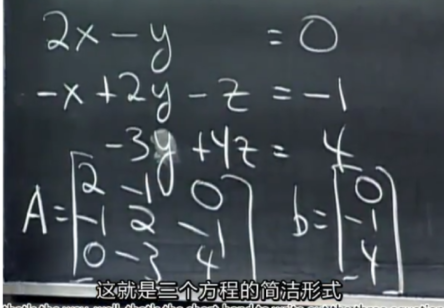 2x - y = 0
-x + 2y - z = -1
-3y + 4z = 4
A = [2 -1 0
-1 2 -1
0 -3 4]
b = [0
-1
4]
这就是三个方程的简洁形式